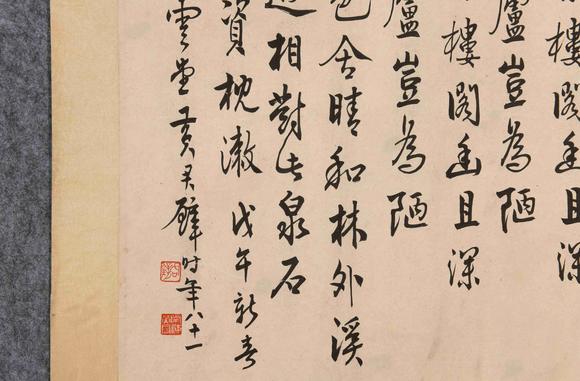 樓閣幽且深
廬豈為陋
樓閣幽且深
廬豈為陋
色含晴和林外溪
相對泉石
資枕漱 戊午新春
雲堂黃君璧時年八十一